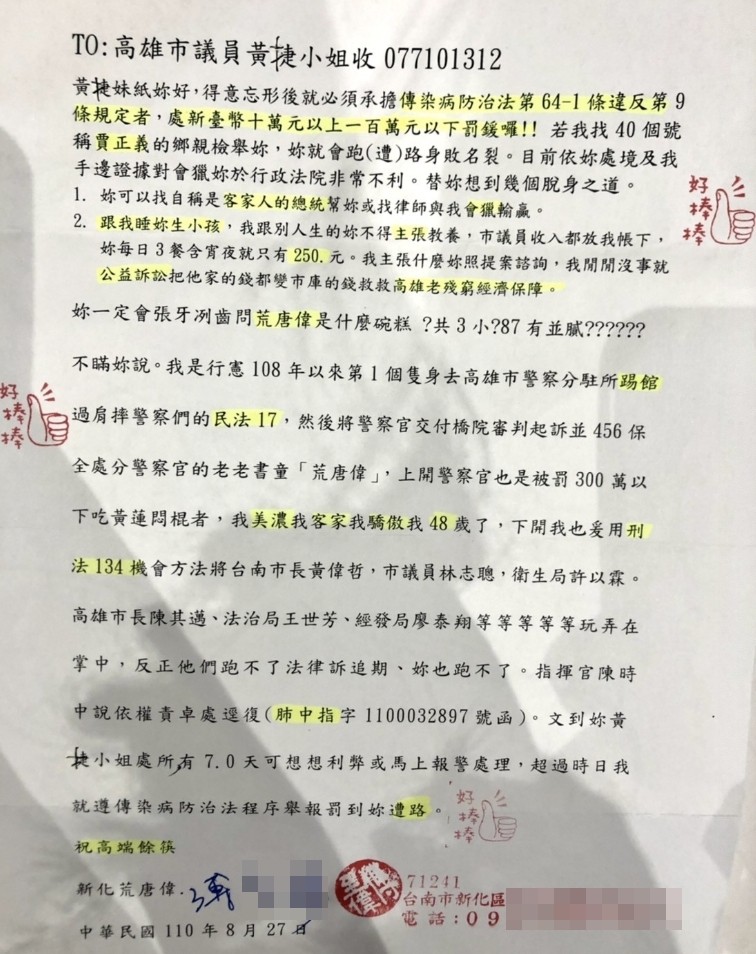 TO:高雄市議員黃捷小姐收 077101312
黃捷妹紙妳好,得意忘形後就必須承擔傳染病防治法第 64-1 條違反第 9
條規定者,處新臺幣十萬元以上一百萬元以下罰鍰囉!! 若我找 40 個號
稱賈正義的鄉親檢舉妳,妳就會跑(遭)路身敗名裂。目前依妳處境及我
手邊證據對會獵妳於行政法院非常不利。替妳想到幾個脫身之道。
1. 妳可以找自稱是客家人的總統幫妳或找律師與我會獵輸贏。
2. 跟我睡妳生小孩,我跟別人生的妳不得主張教養,市議員收入都放我帳下,
妳每日 3 餐含宵夜就只有 250.元。我主張什麼妳照提案諮詢,我閒閒沒事就
公益訴訟把他家的錢都變市庫的錢救救高雄老殘窮經濟保障。
好棒棒
妳一定會張牙冽齒問荒唐偉是什麼碗糕 ?共 3 小?87 有並膩??????
不瞞妳說。我是行憲 108 年以來第 1 個隻身去高雄市警察分駐所踢館
好棒棒
過肩摔警察們的民法 17,然後將警察官交付橋院審判起訴並 456 保
全處分警察官的老老書童「荒唐偉」,上開警察官也是被罰 300 萬以
下吃黃蓮悶棍者,我美濃我客家我驕傲我 48 歲了,下開我也爰用刑
法 134 機會方法將台南市長黃偉哲,市議員林志聰,衛生局許以霖。
高雄市長陳其邁、法治局王世芳、經發局廖泰翔等等等等等等玩弄在
掌中,反正他們跑不了法律訴追期、妳也跑不了。指揮官陳時
中說依權責卓處逕復(肺中指字 1100032897 號函)。文到妳黃
捷小姐處所有 7.0 天可想想利弊或馬上報警處理,超過時日我
就遵傳染病防治法程序舉報罰到妳遭路。
好棒棒
祝高端餘筷
新化荒唐偉.
71241
台南市新化區
電話:09
中華民國 110 年 8 月 27 日